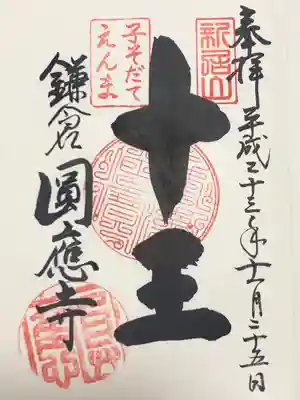 奉拝
平成二十三年十一月二十五日
新居山
十王
子そだて
えんま
鎌倉
圓應寺